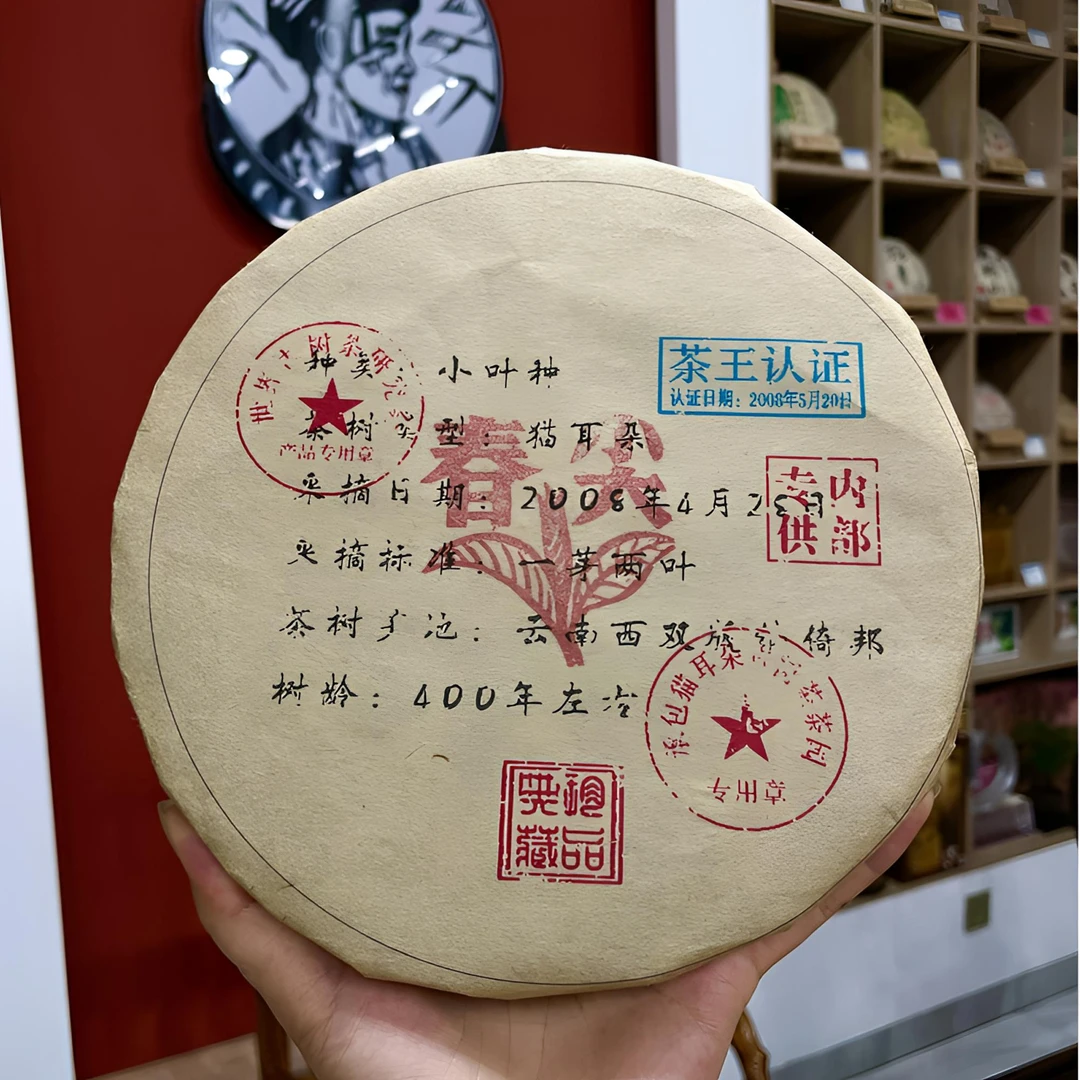 种类：小叶种
茶王认证
认证日期：2008年5月20日
茶树类型：猫耳朵
产品专用章
春尖
采摘日期：2008年4月23日
内部
专供
采摘标准：一芽两叶
茶树产地：云南西双版纳倚邦
树龄：400年左右
承包猫耳朵
茶园
专用章
珍品
典藏